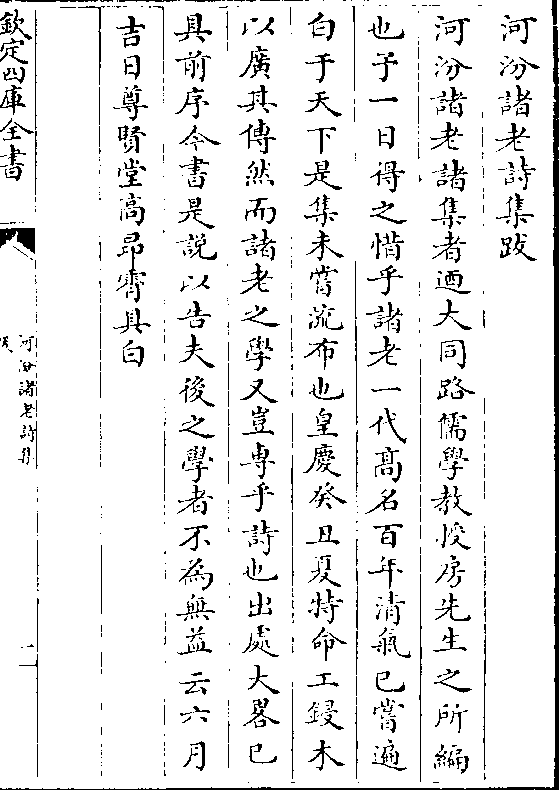 河汾諸老詩集跋
河汾諸老諸集者迺大同路儒學教授房先生之所編
也予一日得之惜乎諸老一代髙名百年清氣已嘗遍
白于天下是集未嘗流布也皇慶癸丑夏特命工鋟木
以廣其傳然而諸老之學又豈專乎詩也出處大畧已
具前序今書是説以告夫後之學者不為無益云六月
吉日尊賢堂髙昻霄具白
欽定四庫全書
河汾諸老詩集
跋
二